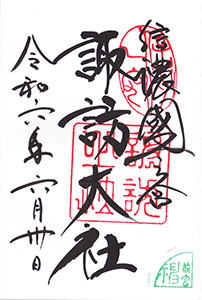 信濃國一宮
諏訪大社
令和六年六月卅日
前宮